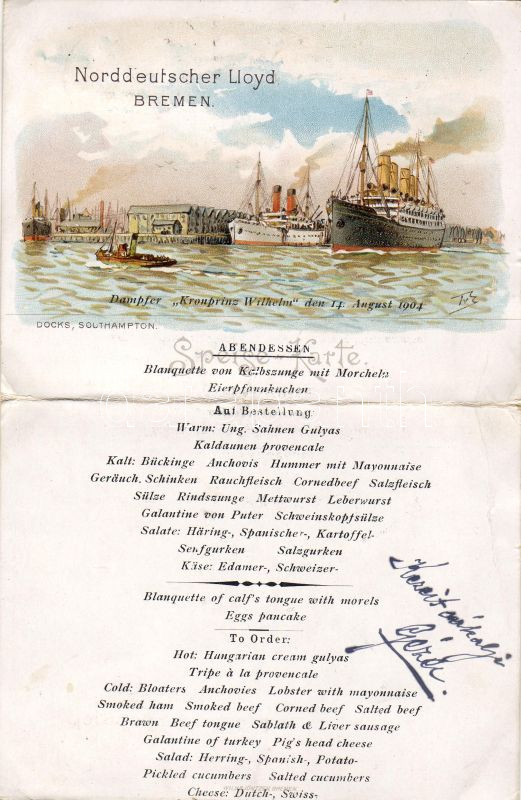 Norddeutscher Lloyd
BREMEN.
Dampfer „Kronprinz Wilhelm" den 14. August 1904
DOCKS, SOUTHAMPTON.
Speise-Karte.
ABENDESSEN
Blanquette von Kalbszunge mit Morcheln
Eierpfannkuchen
Auf Bestellung:
Warm: Ung. Sahnen Gulyas
Kaldaunen provencale
Kalt: Bückinge Anchovis Hummer mit Mayonnaise
Geräuch. Schinken Rauchfleisch Cornedbeef Salzfleisch
Sülze Rindszunge Mettwurst Leberwurst
Galantine von Puter Schweinskopfsülze
Salate: Häring-, Spanischer-, Kartoffel-
Senfgurken Salzgurken
Käse: Edamer-, Schweizer-
Blanquette of calf's tongue with morels
Eggs pancake
To Order:
Hot: Hungarian cream gulyas
Tripe à la provencale
Cold: Bloaters Anchovies Lobster with mayonnaise
Smoked ham Smoked beef Corned beef Salted beef
Brawn Beef tongue Sablath & Liver sausage
Galantine of turkey Pig's head cheese
Salad: Herring-, Spanish-, Potato-
Pickled cucumbers Salted cucumbers
Cheese: Dutch-, Swiss-